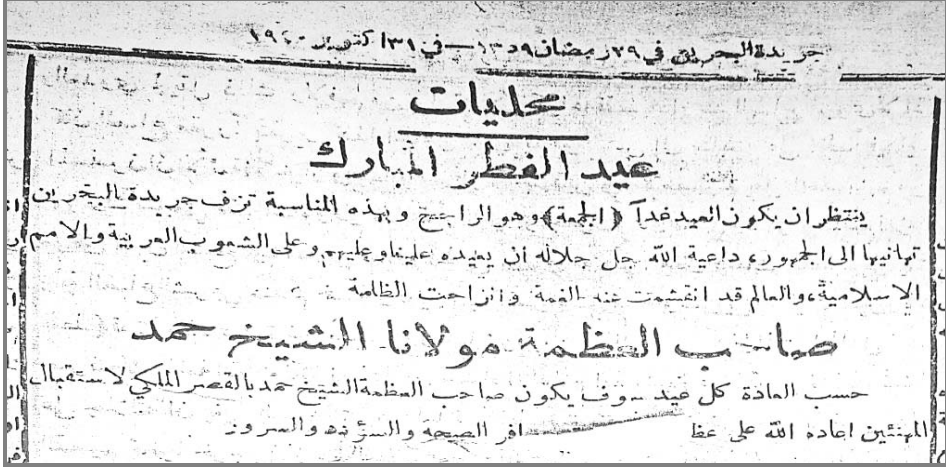 جريدة البحرين في ٢٩ رمضان ١٣٥٩ — في ٣١ اكتوبر ١٩٤٠
محليات
عيد الفطر المبارك
ينتظر ان يكون العيد غداً (الجمعة) وهو الراجح وبهذه المناسبة تزف جريدة البحرين
تهانيها الى الجمهور، داعية الله جل جلاله أن يعيده علينا وعليهم وعلى الشعوب العربية والامم
الاسلامية، والعالم قد انقشعت عنه الغمة وانزاحت الظلمة
صاحب العظمة مولانا الشيخ حمد
حسب العادة كل عيد سوف يكون صاحب العظمة الشيخ حمد بالقصر الملكي لاستقبال
المهنئين اعاده الله على عظ افر الصحة والسؤدد والسرور